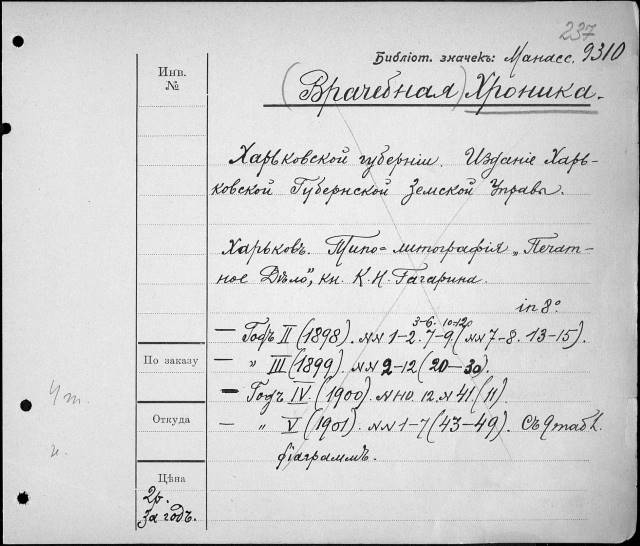 237
Библіот. значекъ: Манасс. 9310
Инв.
№
(Врачебная) Хроника.
Харьковской губерніи. Изданіе Харь-
ковской Губернской Земской Управы.
Харьковъ. Типо-литографія „Печат-
ное Дѣло", кн. К. Н. Гагарина.
in 8°
3-6. 10-12
— Годъ II (1898). №№ 1-2. 7-9 (№№ 7-8. 13-15).
— „ III (1899). №№ 2-12 (20-30).
По заказу
— Годъ IV. (1900). №№ 10. 12. № 41 (11).
Откуда
— „ V (1901). №№ 1-7 (43-49). Съ 9 табл.
діаграммъ.
Цѣна
2р.
за годъ.